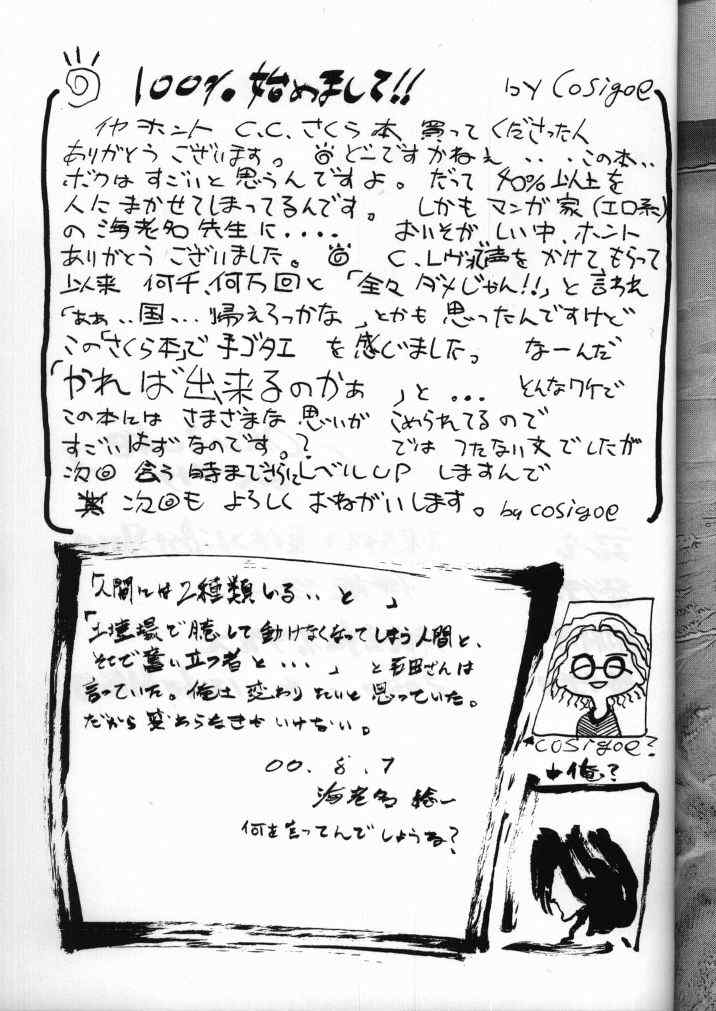 100%始めまして!! by Cosigoe
イヤ ホント C.C.さくら本 買ってくださった人
ありがとう ございます。 どこですかねぇ ・・・この本・・
ボクは すごいと 思うんですよ。 だって 40%以上を
人に まかせてしまってるんです。 しかも マンガ家(エロ系)
の 海老名 先生に・・・・ おいそがしい中、ホント
ありがとう ございました。 声を かけて もらって
以来 何千、何万回と 「全々 ダメじゃん!!」と 言われ
「ああ・・国・・・帰えろっかな」とかも 思ったんですけど
この「さくら本」で 手ゴタエ を 感じました。 なーんだ
「やれば出来るのかぁ」と・・・ そんなワケで
この本には さまざまな 思いが こめられてるので
すごいはず なのです。? では つたない文でしたが
次回 会う 時まで さらに レベルUP しますんで
次回も よろしく おねがいします。 by cosigoe
「人間には2種類いる・・と」
「土壇場で臆して動けなくなってしまう人間と、
そこで奮い立つ者と・・・」 と 毛田さんは
言っていた。俺は 変わりたいと 思っていた。
だから 変わらなきゃいけない。
00.8.7
海老名 総一
何を言ってんでしょうね?
cosigoe?
俺?